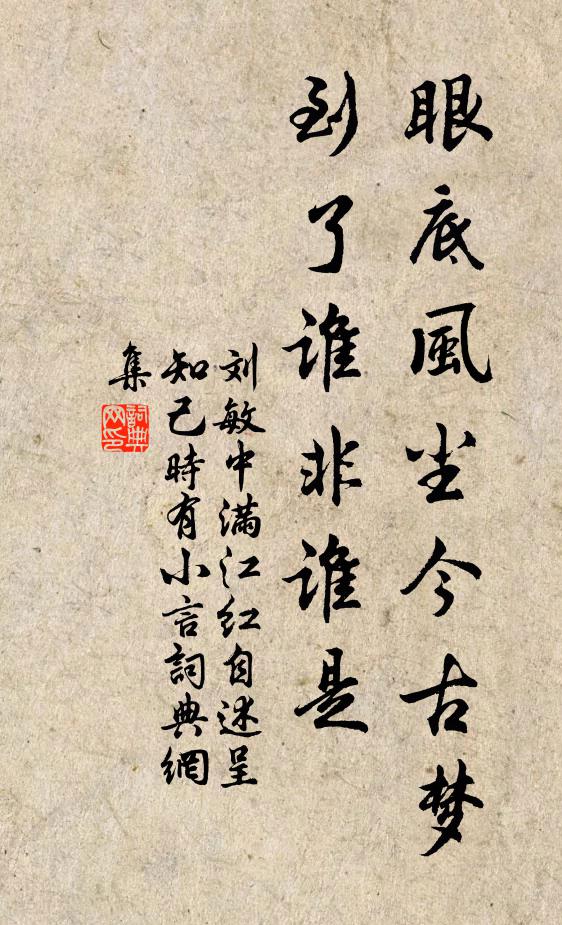 眼底風尘今古梦
到了谁非谁是
刘敏中满江红自述呈
知己時有小言詞典網
集
詞典
网印